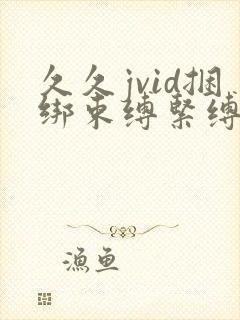 久久jvid捆
绑束缚紧缚
渔鱼